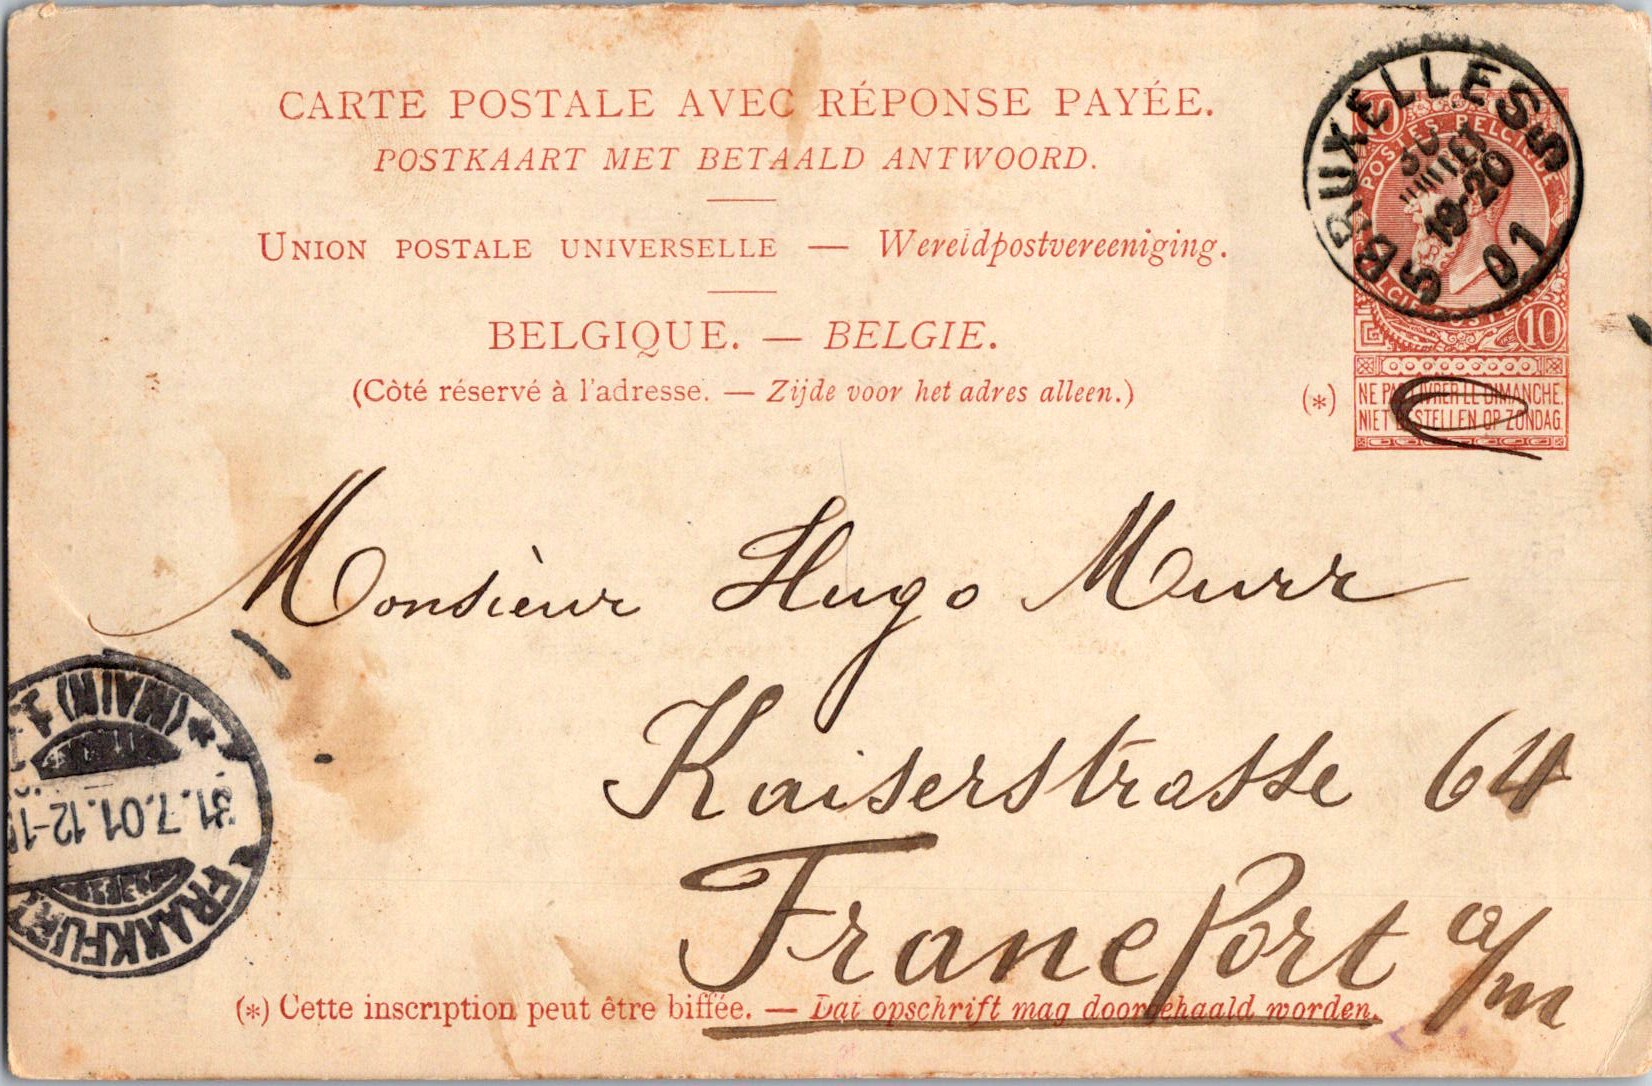 CARTE POSTALE AVEC RÉPONSE PAYÉE.
POSTKAART MET BETAALD ANTWOORD.
UNION POSTALE UNIVERSELLE — Wereldpostvereeniging.
BELGIQUE. — BELGIE.
(Côté réservé à l'adresse. — Zijde voor het adres alleen.)
10
POSTES BELGIQUE
10
BRUXELLES 5
5
30
JUILLET
19-20
01
(*)
NE PAS LIVRER LE DIMANCHE.
NIET BESTELLEN OP ZONDAG.
Monsieur Hugo Murr
Kaiserstrasse 64
Francfort a/m
FRANKFURT
(MAIN)
31.7.01.12-1
(*) Cette inscription peut être biffée. — Dat opschrift mag doorgehaald worden.